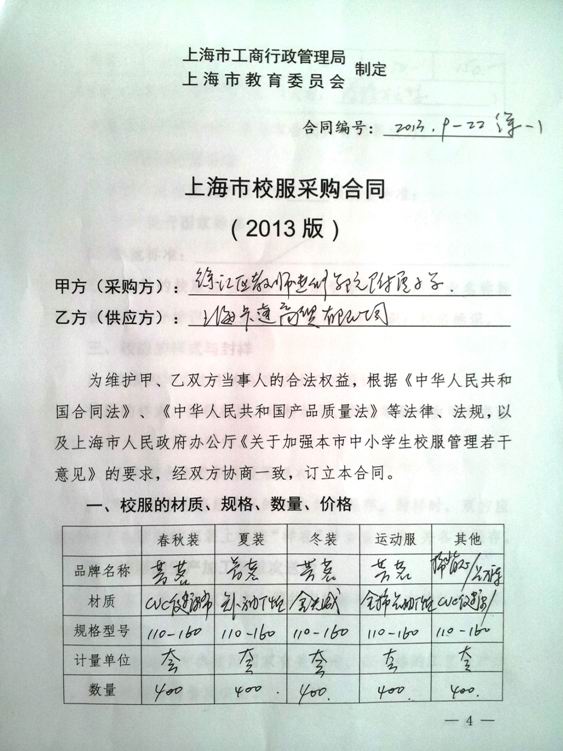 上海市工商行政管理局
上海市教育委员会 制定
合同编号： 2013.9-22 徐-1
上海市校服采购合同
（2013 版）
甲方（采购方）： 徐汇区教师进修学院附属小学.
乙方（供应方）： 上海 商贸有限公司
为维护甲、乙双方当事人的合法权益，根据《中华人民共和
国合同法》、《中华人民共和国产品质量法》等法律、法规，以
及上海市人民政府办公厅《关于加强本市中小学生校服管理若干
意见》的要求，经双方协商一致，订立本合同。
一、校服的材质、规格、数量、价格
春秋装 夏装 冬装 运动服 其他
品牌名称
材质 CVC CVC
规格型号 110-160 110-160 110-160 110-160 110-160
计量单位 套 套 套 套 套
数量 400 400. 400. 400 400.
— 4 —